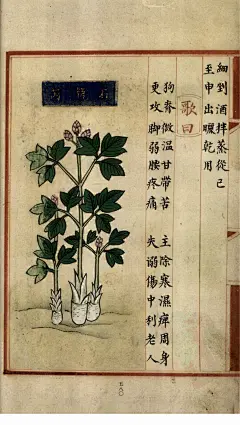 細剉酒拌蒸從巳
至申出曬乾用
歌曰
狗脊微温甘帶苦 主除寒濕痺周身
更攻脚弱腰疼痛 失溺傷中利老人